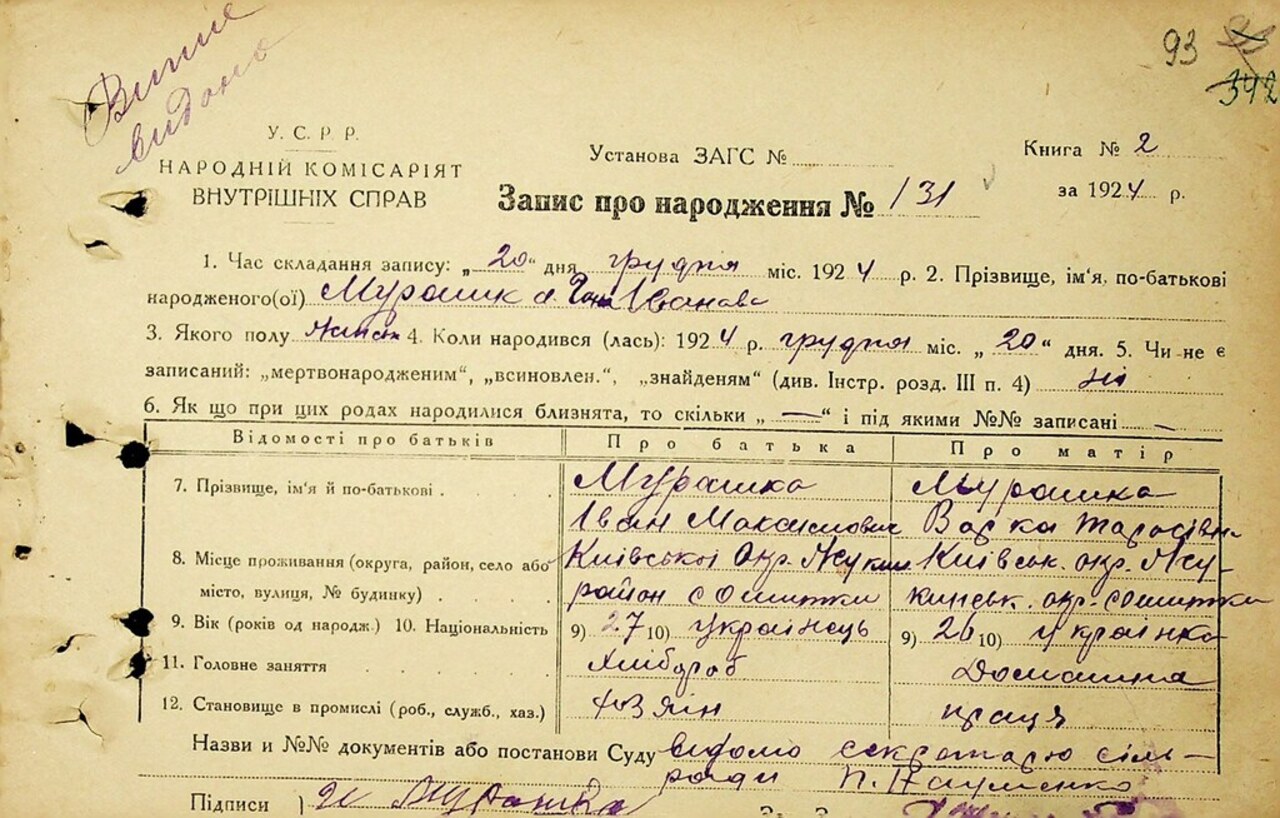 Випис
видано
93
342
У. С. Р. Р.
НАРОДНІЙ КОМІСАРІЯТ
ВНУТРІШНІХ СПРАВ
Установа ЗАГС №
Книга № 2
за 1924 р.
Запис про народження № 131
1. Час складання запису: „20“ дня грудня міс. 1924 р. 2. Прізвище, ім'я, по-батькові
народженого(ої) Мурашк Іванова
3. Якого полу 4. Коли народився (лась): 1924 р. грудня міс. „20“ дня. 5. Чи не є
записаний: „мертвонародженим“, „всиновлен.“, „знайденям“ (див. Інстр. розд. III п. 4) ні
6. Як що при цих родах народилися близнята, то скільки „—“ і під якими №№ записані —
Відомості про батьків Про батька Про матір
7. Прізвище, ім'я й по-батькові Мурашка Мурашка
Іван Максимович Варка Тарасівн
8. Місце проживання (округа, район, село або Київської окр. Київськ. окр. Жу-
місто, вулиця, № будинку) район с Ошитки кинськ. окр. с Ошитки
9. Вік (років од народж.) 10. Національність 9) 27 10) українець 9) 26 10) українка
11. Головне заняття хлібороб Домашня
12. Становище в промислі (роб., служб., хаз.) хазяїн праця
Назви и №№ документів або постанови Суду відомо секретарю сіль-
ради П. Науменко
Підписи Мурашка